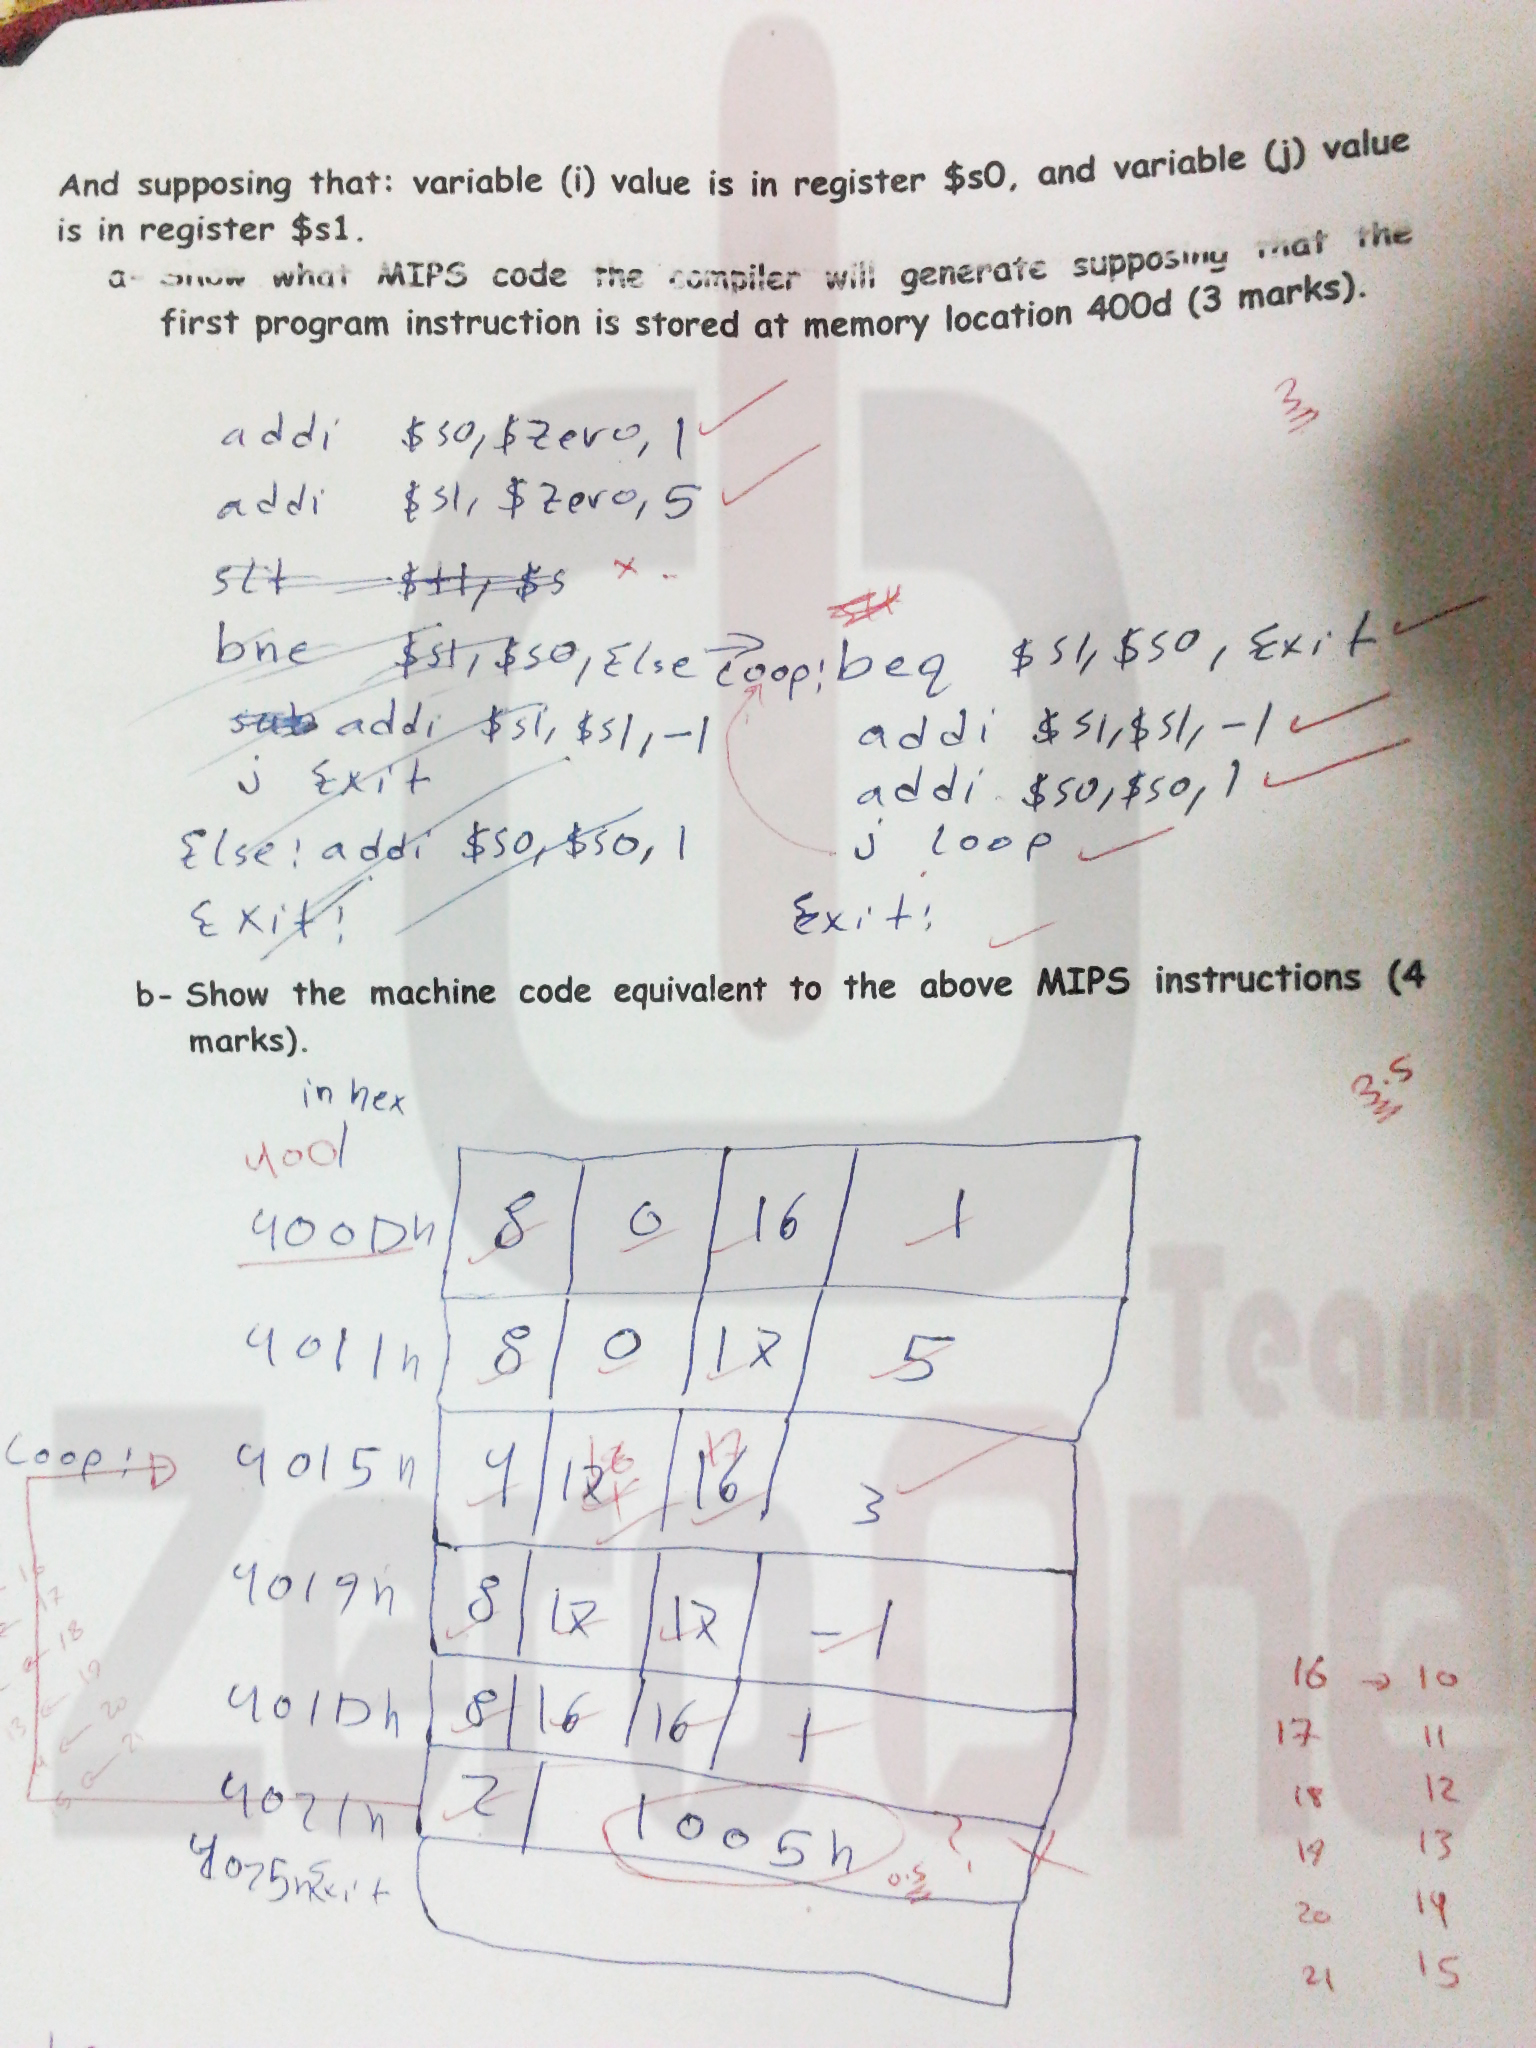 And supposing that: variable (i) value is in register $s0, and variable (j) value
is in register $s1.
a- Show what MIPS code the compiler will generate supposing that the
first program instruction is stored at memory location 400d (3 marks).
3
addi $s0, $zero, 1
addi $s1, $zero, 5
slt $t1, $s
bne $s1, $s0, Else
addi $s1, $s1, -1
j Exit
Else: addi $s0, $s0, 1
Exit:
loop: beq $s1, $s0, Exit
addi $s1, $s1, -1
addi $s0, $s0, 1
j loop
Exit:
b- Show the machine code equivalent to the above MIPS instructions (4
marks).
3.5
in hex
400d
400Dh 8 0 16 1
4011h 8 0 17 5
loop: 4015h 4 17 16 3
16 17
4019h 8 17 17 -1
401Dh 8 16 16 1
4021h 2 1005h ?
0.5
4025h Exit
16 → 10
17 11
18 12
19 13
20 14
21 15
16
17
18
19
13 20
21
Team
ZeroOne